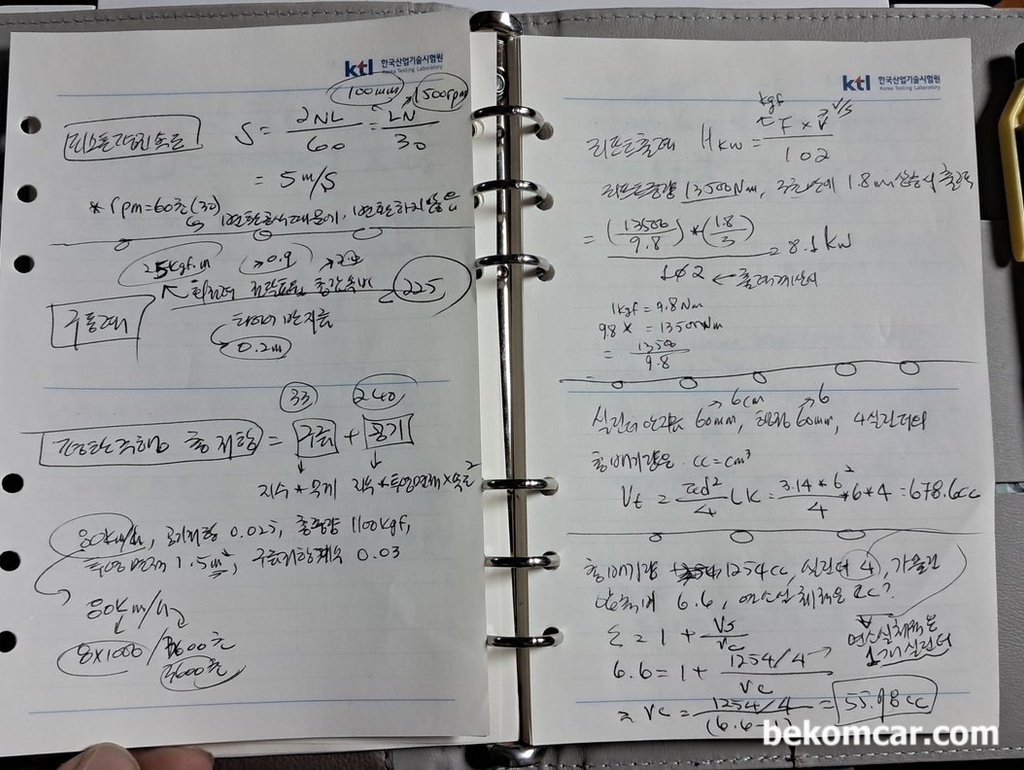 ktl 한국산업기술시험원
Korea Testing Laboratory
100mm 1500rpm
피스톤 평균속도 S = 2NL / 60 = LN / 30
= 5 m/s
* rpm=60초(30)
25kgf.m 0.9
225
구동력
타이어 반지름
0.2m
33 240
평탄주행 총 저항 = 구름 + 공기
계수 * 무게 계수 * 투영면적 * 속도²
80km/h, 공기저항 0.025, 총중량 1100kgf,
투영면적 1.5m², 구름저항계수 0.03
80km/시간
8×1000 / 3600초
3600초
ktl 한국산업기술시험원
Korea Testing Laboratory
리프트출력 Hkw = F × V / 102
kgf
리프트중량 13500Nm, 3초만에 1.8m 상승시 출력
= (13500 / 9.8) * (1.8 / 3) / 102 = 8.1kw
← 출력계산시
1kgf = 9.8Nm
98 x = 13500Nm
= 13500 / 9.8
6cm 6
실린더 안지름 60mm, 행정 60mm, 4실린더의
총배기량은 cc=cm³
Vt = πd² / 4 LK = 3.14 * 6² / 4 * 6 * 4 = 678.6cc
총배기량 1254cc, 실린더 4, 가솔린
압축비 6.6, 연소실체적은 cc?
ε = 1 + Vs / Vc
연소실체적은
1개 실린더
6.6 = 1 + 1254/4 / Vc
Vc = 1254/4 / (6.6-1) = 55.98cc
bekomcar.com